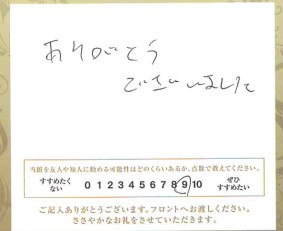 ありがとう
ございました
当館を友人や知人に勧める可能性はどのくらいあるか、点数で教えてください。
すすめたく
ない
0 1 2 3 4 5 6 7 8 9 10
ぜひ
すすめたい
ご記入ありがとうございます。フロントへお渡しください。
ささやかなお礼をさせていただきます。